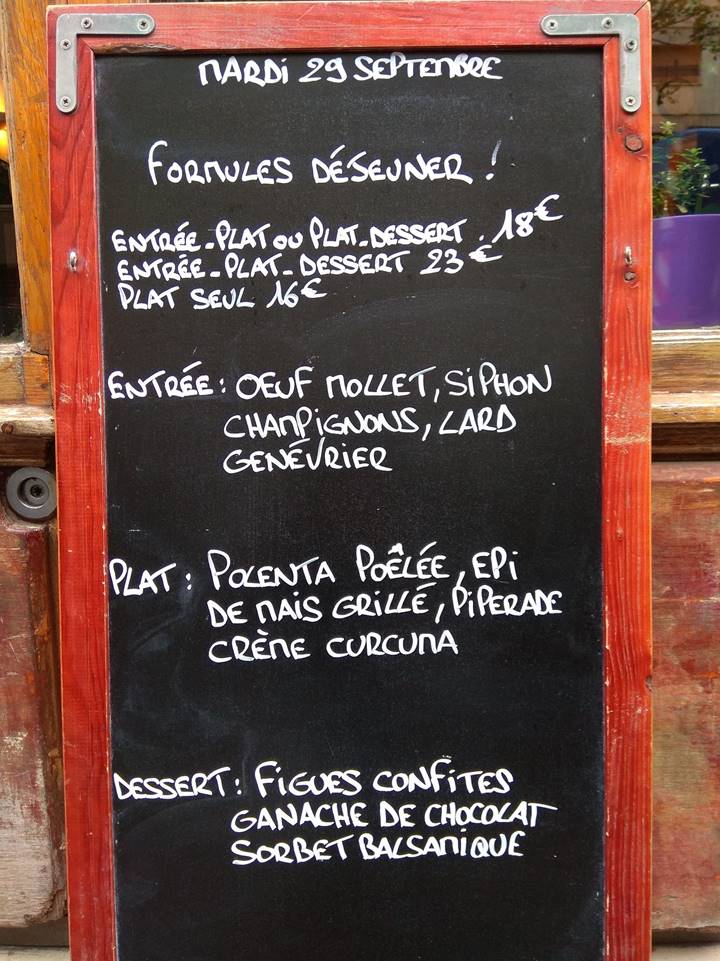 MARDI 29 SEPTEMBRE
FORMULES DÉJEUNER !
ENTRÉE-PLAT OU PLAT-DESSERT . 18€
ENTRÉE-PLAT-DESSERT 23€
PLAT SEUL 16€
ENTRÉE : OEUF MOLLET, SIPHON
CHAMPIGNONS, LARD
GENÉVRIER
PLAT : POLENTA POÊLÉE, EPI
DE MAIS GRILLÉ, PIPERADE
CRÈME CURCUMA
DESSERT : FIGUES CONFITES
GANACHE DE CHOCOLAT
SORBET BALSAMIQUE